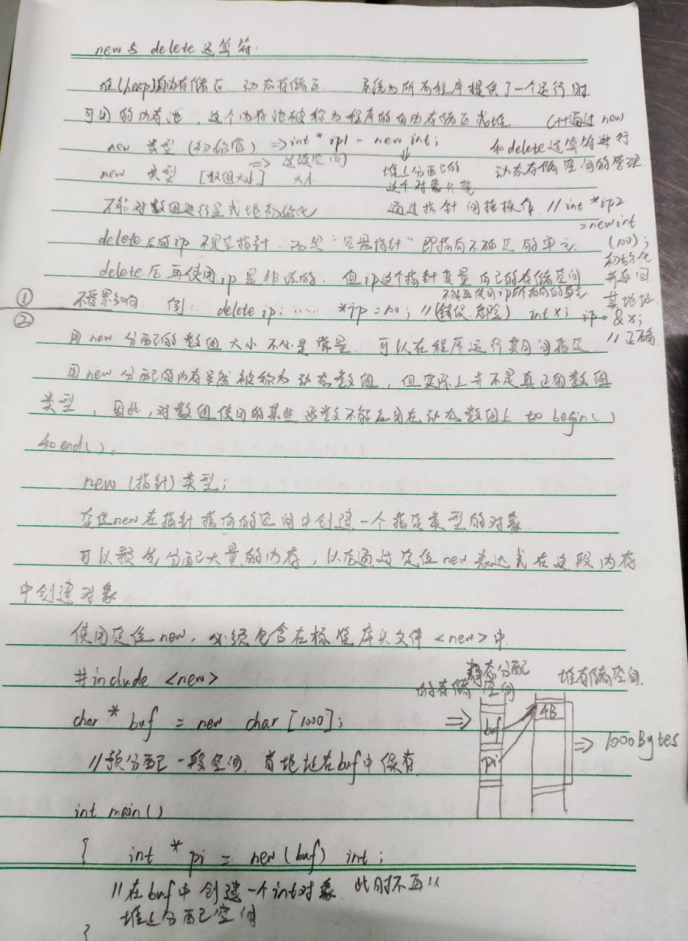 new与delete运算符:
堆(heap)自由存储区 动态存储区 系统为所有程序提供了一个运行时
可用的内存池,这个内存池被称为程序的自由存储区或堆 C++通过new
new 类型(初始值) => int * ip1 = new int; 和delete运算符进行
new 类型 [数组大小] => 连续空间 大小 堆上分配的 动态存储空间的管理
这个对象
不能对数组进行显式地初始化 通过指针间接操作 // int *ip2
= new int
delete后的ip不是空指针 而是"空悬指针"即指向不确定的单元 (10);
初始化
delete后再使用ip是非法的. 但ip这个指针变量自己的存储空间 并返回
其地址
① 不受影响. 例: delete ip; ...... *ip = 10; //(错误.危险) int x; ip = &x;
不能再使用ip所指向的单元
// 正确
② 用new分配的数组大小不必是常量. 可以在程序运行期间指定
用new分配的内存虽然被称为动态数组,但实际上并不是真正的数组
类型,因此,对数组使用的某些函数不能应用在动态数组上 to begin()
和end()。
new (指针) 类型;
定位new在指针指向的空间中创建一个指定类型的对象
可以预先分配大量的内存,以后通过定位new表达式在这段内存
中创建对象
使用定位new,必须包含在标准库头文件<new>中
#include <new>
静态分配
的存储空间
堆存储空间
char * buf = new char [1000];
=> buf 4B
pi
=> 1000Bytes
//预分配一段空间. 首地址在buf中保存
int main()
{ int * pi = new (buf) int;
//在buf中创建一个int对象. 此时不再//
堆上分配空间
}